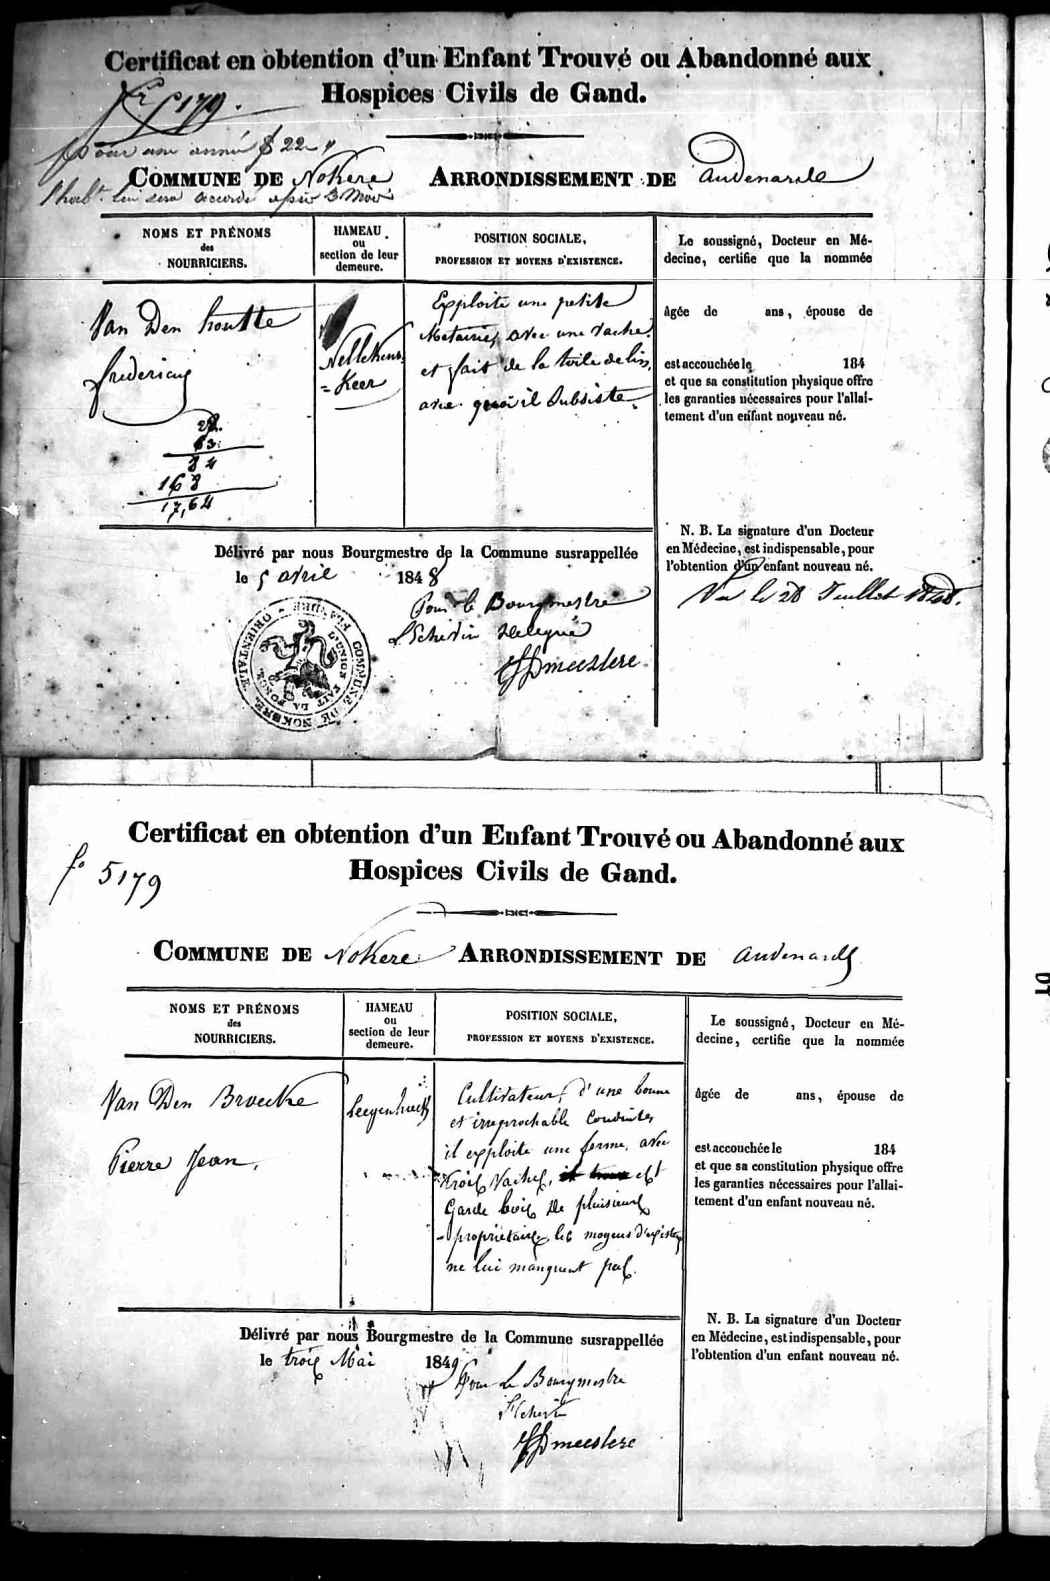 Certificat en obtention d'un Enfant Trouvé ou Abandonné aux
Hospices Civils de Gand.
5179.
pour une année f 22 "
COMMUNE DE Nokere ARRONDISSEMENT DE Audenarde
sera accordé après 3 Mois
NOMS ET PRÉNOMS
des
NOURRICIERS.
HAMEAU
ou
section de leur
demeure.
POSITION SOCIALE,
PROFESSION ET MOYENS D'EXISTENCE.
Van Den houtte
fredericus
22.
63.
84
168
17,64
Nellekens
=Keer
Exploite une petite
Metairie, avec une vache
et fait de la toile de lin,
avec quoi il Subsiste.
Le soussigné, Docteur en Mé-
decine, certifie que la nommée
âgée de ans, épouse de
est accouchée le 184
et que sa constitution physique offre
les garanties nécessaires pour l'allai-
tement d'un enfant nouveau né.
N. B. La signature d'un Docteur
en Médecine, est indispensable, pour
l'obtention d'un enfant nouveau né.
Vu le 28 Juillet 1848.
Délivré par nous Bourgmestre de la Commune susrappellée
le 5 avril 1848
Pour le Bourgmestre
L'Echevin Delegué
Dmeestere
COMMUNE DE NOKERE. FLANDRE ORIENTALE
L'UNION FAIT LA FORCE
Certificat en obtention d'un Enfant Trouvé ou Abandonné aux
Hospices Civils de Gand.
fo 5179
COMMUNE DE Nokere ARRONDISSEMENT DE Audenarde
NOMS ET PRÉNOMS
des
NOURRICIERS.
HAMEAU
ou
section de leur
demeure.
POSITION SOCIALE,
PROFESSION ET MOYENS D'EXISTENCE.
Van Den Broecke
Pierre Jean,
Cultivateur, d'une bonne
et irreprochable Conduite,
il exploite une ferme, avec
trois Vaches, est
Garde bois de plusieurs
propriétaires, les moyens d'existence
ne lui manquent pas.
Le soussigné, Docteur en Mé-
decine, certifie que la nommée
âgée de ans, épouse de
est accouchée le 184
et que sa constitution physique offre
les garanties nécessaires pour l'allai-
tement d'un enfant nouveau né.
N. B. La signature d'un Docteur
en Médecine, est indispensable, pour
l'obtention d'un enfant nouveau né.
Délivré par nous Bourgmestre de la Commune susrappellée
le trois Mai 1849
Pour Le Bourgmestre
l'Echevin
Dmeestere